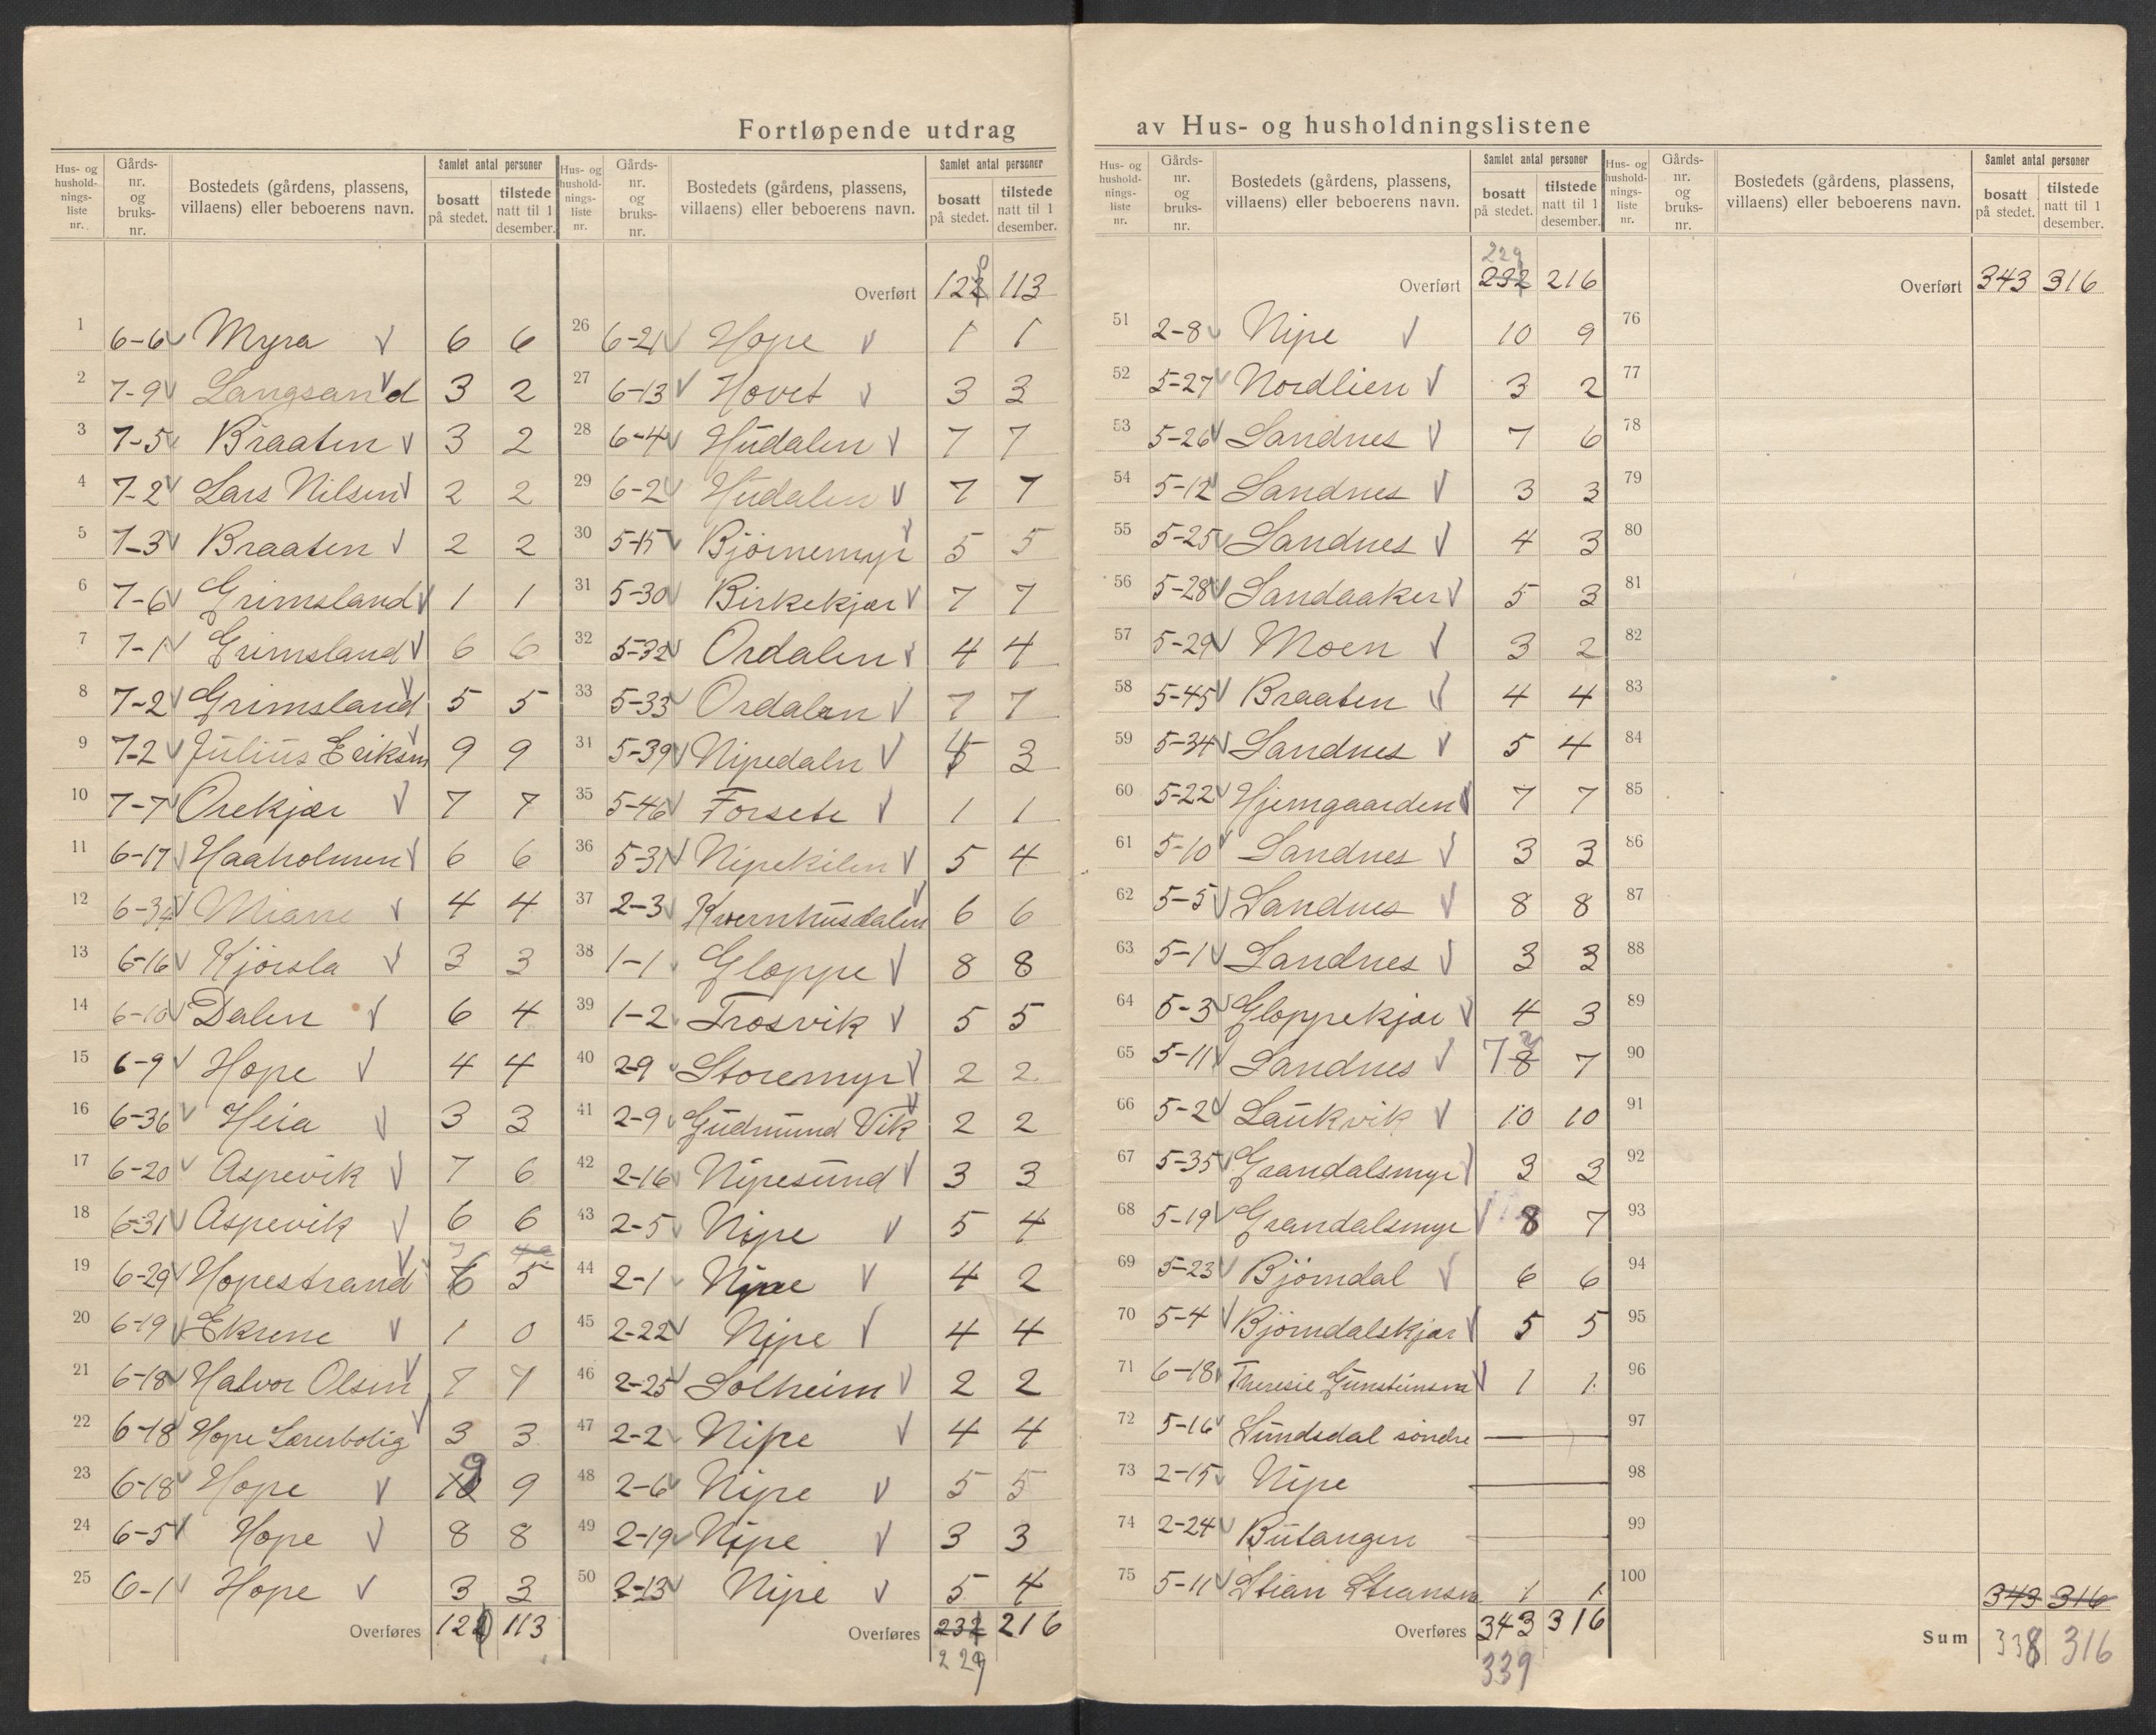 Fortløpende utdrag av Hus- og husholdningslistene
Hus- og hushold- nings- liste nr. Gårds- nr. og bruks- nr. Bostedets (gårdens, plassens, villaens) eller beboerens navn. Samlet antal personer bosatt på stedet. tilstede natt til 1 desember.
1 6-6 Myra 6 6
2 7-9 Langsand 3 2
3 7-5 Braaten 3 2
4 7-2 Lars Nilsen 2 2
5 7-3 Braaten 2 2
6 7-6 Grimsland 1 1
7 7-1 Grimsland 6 6
8 7-2 Grimsland 5 5
9 7-2 Julius Eriksen 9 9
10 7-7 Orekjær 7 7
11 6-17 Haaholmen 6 6
12 6-34 4 4
13 6-16 Kjörsla 3 3
14 6-10 Dalen 6 4
15 6-9 Hope 4 4
16 6-36 Heia 3 3
17 6-20 Aspevik 7 6
18 6-31 Aspevik 6 6
19 6-29 Hopestrand 6 5
20 6-19 Ekrene 1 0
21 6-18 Halvor Olsen 7 7
22 6-18 Hope Lærerbolig 3 3
23 6-18 Hope 9 9
24 6-5 Hope 8 8
25 6-1 Hope 3 3
Overføres 122 113
Hus- og hushold- nings- liste nr. Gårds- nr. og bruks- nr. Bostedets (gårdens, plassens, villaens) eller beboerens navn. Samlet antal personer bosatt på stedet. tilstede natt til 1 desember.
Overført 122 113
26 6-21 Hope 1 1
27 6-13 Hovet 3 3
28 6-4 Hudalen 7 7
29 6-2 Hudalen 7 7
30 5-15 Bjørnemyr 5 5
31 5-30 Birkekjær 7 7
32 5-32 Ordalen 4 4
33 5-33 Ordalen 7 7
31 5-39 Nipedaln 4 3
35 5-46 Forsete 1 1
36 5-31 Nipekilen 5 4
37 2-3 Kvernhusdalen 6 6
38 1-1 Gloppe 8 8
39 1-2 Trosvik 5 5
40 2-9 Storemyr 2 2
41 2-9 Gudmund Vik 2 2
42 2-16 Nipesund 3 3
43 2-5 Nipe 5 4
44 2-1 Nipe 4 2
45 2-22 Nipe 4 4
46 2-25 Solheim 2 2
47 2-2 Nipe 4 4
48 2-6 Nipe 5 5
49 2-19 Nipe 3 3
50 2-13 Nipe 5 4
Overføres 232 216
229
Hus- og hushold- nings- liste nr. Gårds- nr. og bruks- nr. Bostedets (gårdens, plassens, villaens) eller beboerens navn. Samlet antal personer bosatt på stedet. tilstede natt til 1 desember.
229
Overført 232 216
51 2-8 Nipe 10 9
52 5-27 Nordlien 3 2
53 5-26 Sandnes 7 6
54 5-12 Sandnes 3 3
55 5-25 Sandnes 4 3
56 5-28 Sandaaker 5 3
57 5-29 Moen 3 2
58 5-45 Braaten 4 4
59 5-34 Sandnes 5 4
60 5-22 Hjemgaarden 7 7
61 5-10 Sandnes 3 3
62 5-5 Sandnes 8 8
63 5-1 Sandnes 3 3
64 5-3 Gloppekjær 4 3
65 5-11 Sandnes 7 8 7
66 5-2 Laukvik 10 10
67 5-35 Grandalsmyr 3 3
68 5-19 Grandalsmyr 8 7
69 5-23 Bjørndal 6 6
70 5-4 Bjørndalskjær 5 5
71 6-18 Theresie Gunsteinsen 1 1
72 5-16 Sundsdal söndre
73 2-15 Nipe
74 2-24 Butangen
75 5-11 Stian Stiansen 1 1
Overføres 343 316
339
Hus- og hushold- nings- liste nr. Gårds- nr. og bruks- nr. Bostedets (gårdens, plassens, villaens) eller beboerens navn. Samlet antal personer bosatt på stedet. tilstede natt til 1 desember.
Overført 343 316
76
77
78
79
80
81
82
83
84
85
86
87
88
89
90
91
92
93
94
95
96
97
98
99
100
343 316
Sum 338 316